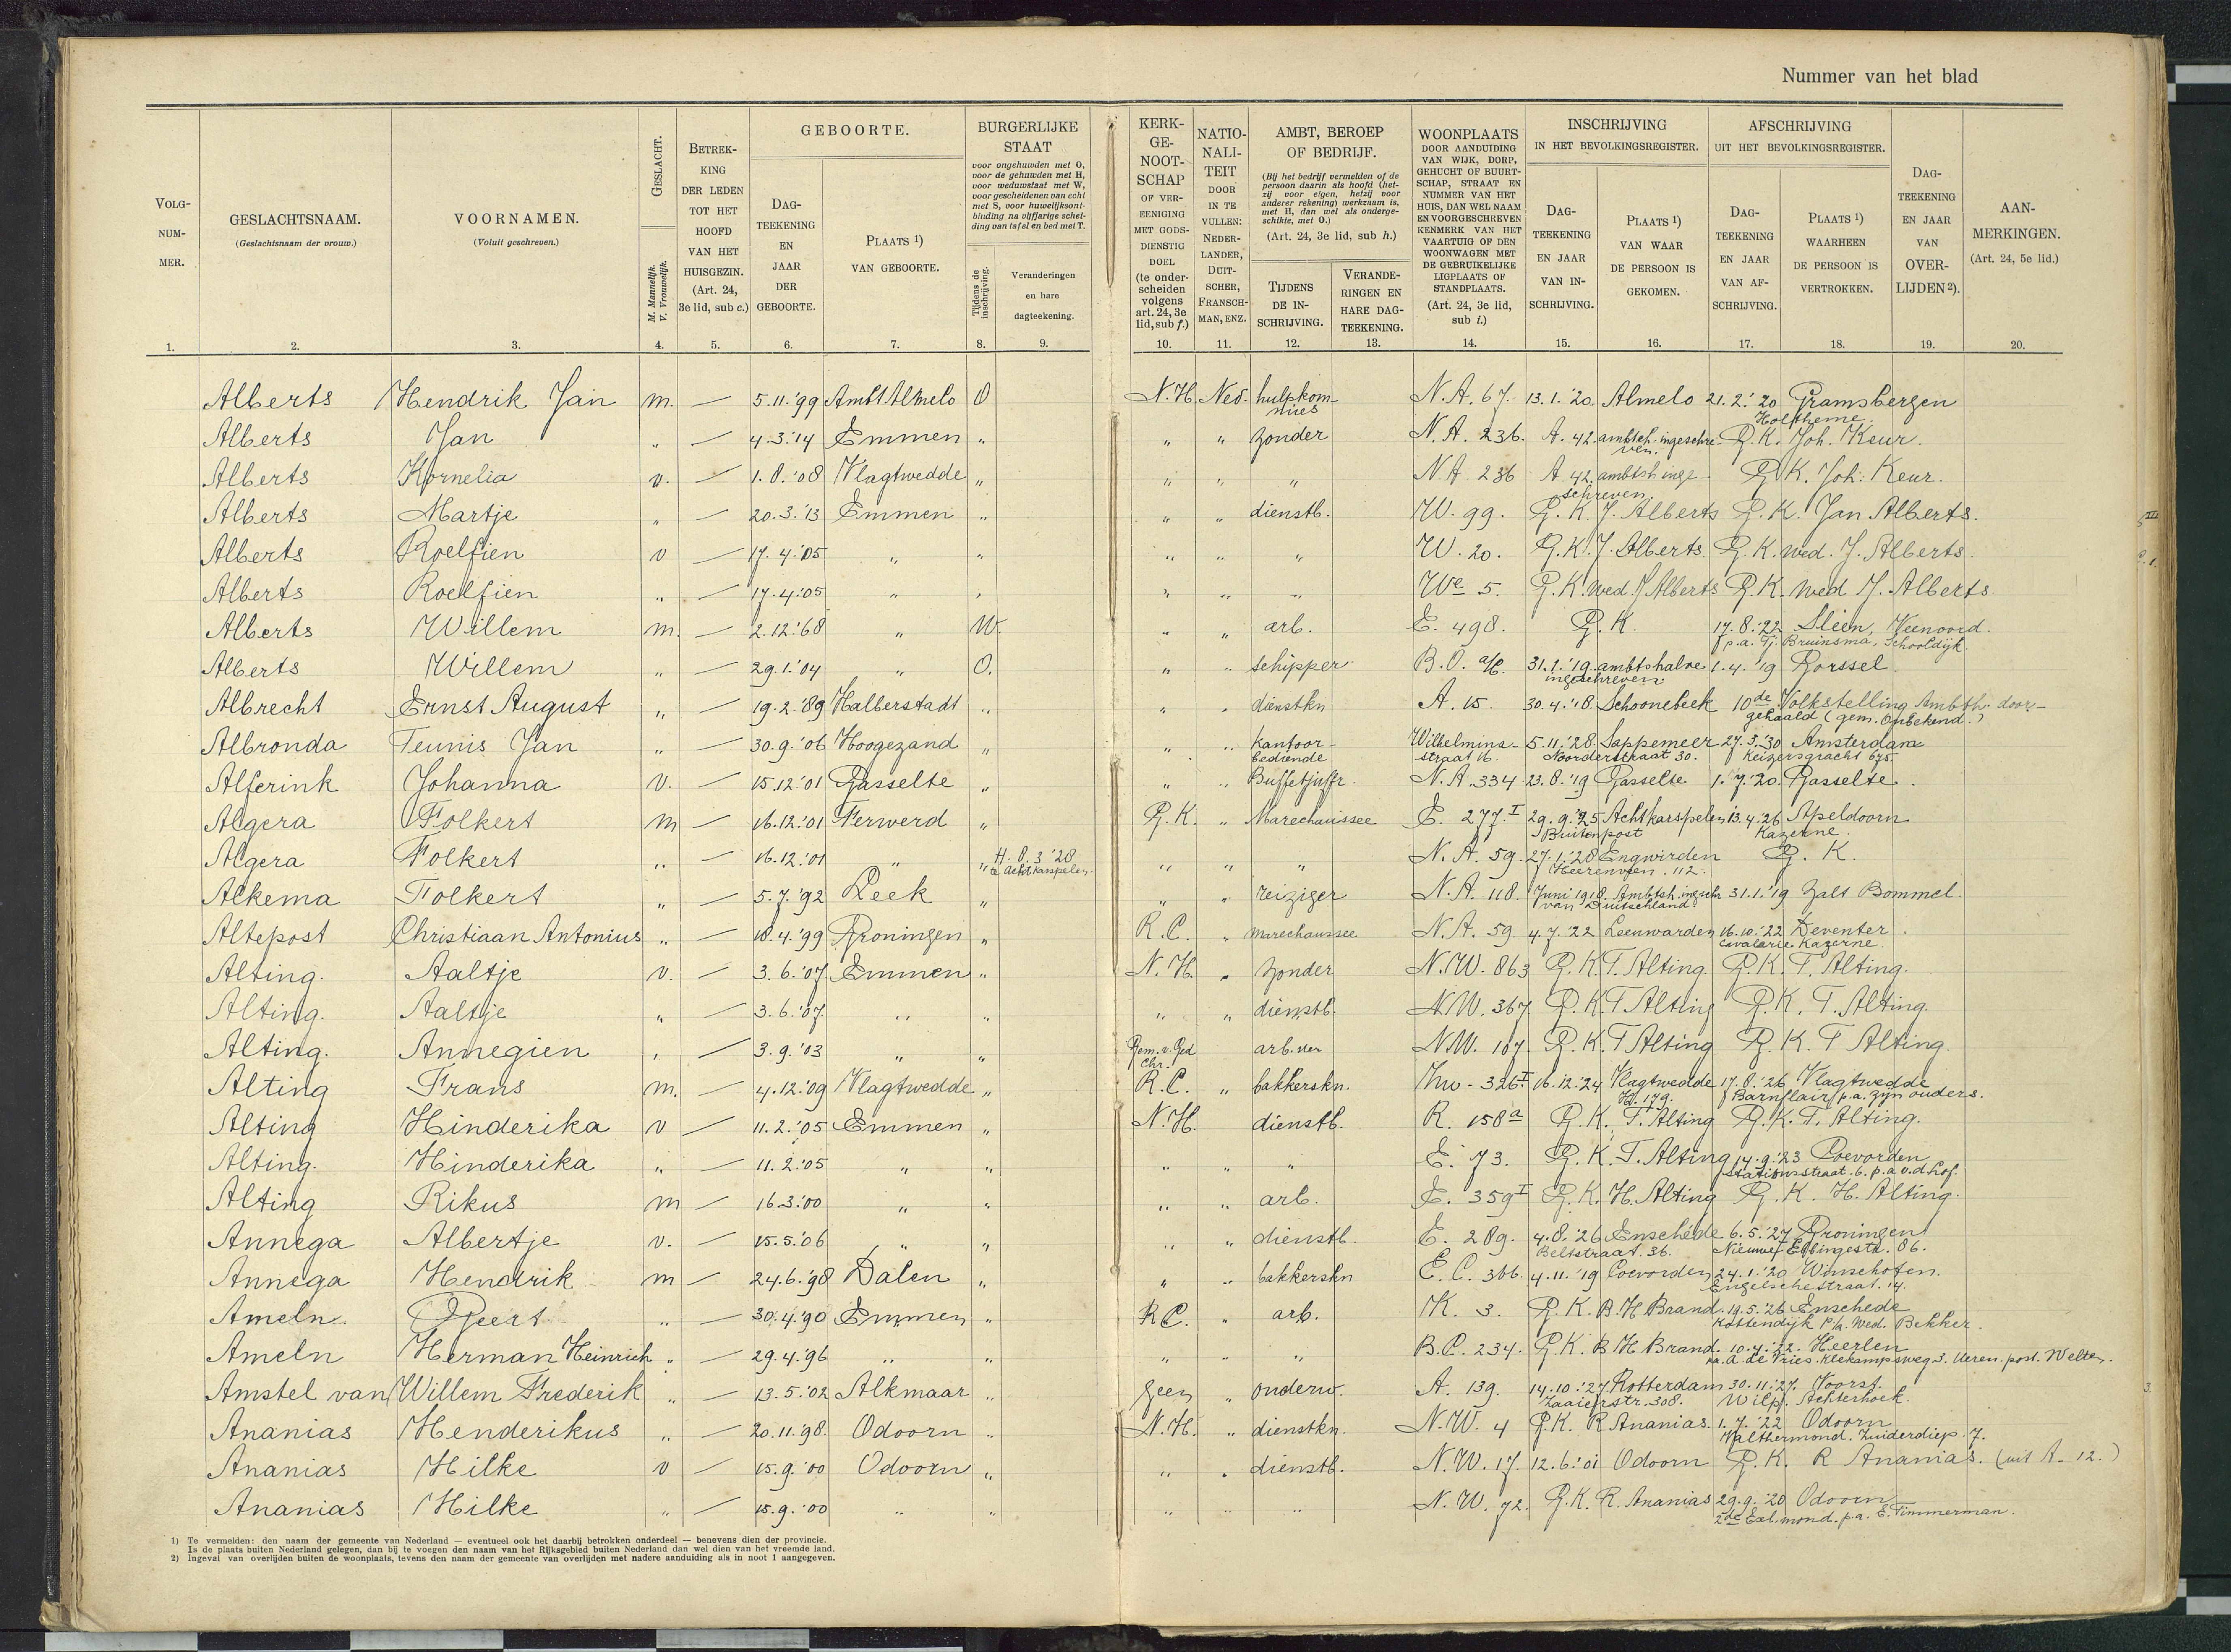 Nummer van het blad
VOLG-NUM-MER.
GESLACHTSNAAM.
(Geslachtsnaam der vrouw.)
VOORNAMEN.
(Voluit geschreven.)
GESLACHT.
M. Mannelijk. V. Vrouwelijk.
BETREK-KING DER LEDEN TOT HET HOOFD VAN HET HUISGEZIN. (Art. 24, 3e lid, sub c.)
GEBOORTE.
DAG-TEEKENING EN JAAR DER GEBOORTE.
PLAATS 1) VAN GEBOORTE.
BURGERLIJKE STAAT
voor ongehuwden met O, voor de gehuwden met H, voor weduwstaat met W, voor gescheidenen van echt met S, voor huwelijksont-binding na vijfjarige schei-ding van tafel en bed met T.
Tijdens de inschrijving.
Veranderingen en hare dagteekening.
KERK-GE-NOOT-SCHAP OF VER-EENIGING MET GODS-DIENSTIG DOEL (te onder-scheiden volgens art. 24, 3e lid, sub f.)
NATIO-NALI-TEIT DOOR IN TE VULLEN: NEDER-LANDER, DUIT-SCHER, FRANSCH-MAN, ENZ.
AMBT, BEROEP OF BEDRIJF.
(Bij het bedrijf vermelden of de persoon daarin als hoofd (het-zij voor eigen, hetzij voor anderer rekening) werkzaam is, met H, dan wel als onderge-schikte, met O.)
(Art. 24, 3e lid, sub h.)
TIJDENS DE IN-SCHRIJVING.
VERANDE-RINGEN EN HARE DAG-TEEKENING.
WOONPLAATS DOOR AANDUIDING VAN WIJK, DORP, GEHUCHT OF BUURT-SCHAP, STRAAT EN NUMMER VAN HET HUIS, DAN WEL NAAM EN VOORGESCHREVEN KENMERK VAN HET VAARTUIG OF DEN WOONWAGEN MET DE GEBRUIKELIJKE LIGPLAATS OF STANDPLAATS. (Art. 24, 3e lid, sub i.)
INSCHRIJVING IN HET BEVOLKINGSREGISTER.
DAG-TEEKENING EN JAAR VAN IN-SCHRIJVING.
PLAATS 1) VAN WAAR DE PERSOON IS GEKOMEN.
AFSCHRIJVING UIT HET BEVOLKINGSREGISTER.
DAG-TEEKENING EN JAAR VAN AF-SCHRIJVING.
PLAATS 1) WAARHEEN DE PERSOON IS VERTROKKEN.
DAG-TEEKENING EN JAAR VAN OVER-LIJDEN 2).
AAN-MERKINGEN. (Art. 24, 5e lid.)
1. 2. 3. 4. 5. 6. 7. 8. 9. 10. 11. 12. 13. 14. 15. 16. 17. 18. 19. 20.
Alberts Hendrik Jan m. — 5.11.'99 Ambt Almelo O N.H. Ned. hulpkom-mies N.A. 67. 13.1.'20 Almelo 21.2.'20 Gramsbergen Holtheme
Alberts Jan „ — 4.3.'14 Emmen „ „ „ zonder N.A. 236. A. 42. ambtsh. ingeschre-ven. G.K. Joh. Keur.
Alberts Kornelia v. — 1.8.'08 Vlagtwedde „ „ „ „ N.A 236 A 42. ambtsh inge-schreven. G K. Joh. Keur.
Alberts Martje „ — 20.3.'13 Emmen „ „ „ dienstb. W. 99. G.K. J. Alberts G.K. Jan Alberts.
Alberts Roelfien v — 17.4.'05 „ „ „ „ „ W. 20. G.K. J. Alberts. G.K. wed. J. Alberts.
Alberts Roelfien „ — 17.4.'05 „ „ „ „ „ We 5. G.K. wed J Alberts G.K. wed J. Alberts
Alberts Willem m. — 2.12.'68 „ W. „ „ arb. E. 498. G.K. 17.8.'22 Sleen, Veenoord. p.a. Tj. Bruinsma, Schooldijk.
Alberts Willem „ — 29.1.'04 „ O. „ „ schipper B.O. a/c. 31.1.'19. ambtshalve ingeschreven 1.4.'19 Gorssel.
Albrecht Ernst August „ — 19.2.'89 Halberstadt „ „ „ dienstkn A. 15. 30.4.'18. Schoonebeek 10de Volkstelling Ambth. door-gehaald (gem. Onbekend.)
Albronda Teunis Jan „ — 30.9.'06 Hoogezand „ „ „ kantoor-bediende Wilhelmina-straat 16. 5.11.'28. Sappemeer Noorderstraat 30. 27.3.30 Amsterdam Keizersgracht 675.
Alferink Johanna v. — 15.12.'01 Gasselte „ „ „ Buffetjuffr. N.A. 334 23.8.'19 Gasselte 1.7.'20. Gasselte.
Algera Folkert m — 16.12.'01 Ferwerd „ G.K. „ Marechaussee E. 277.I 29.9.'25 Achtkarspelen Buitenpost 13.4.26 Apeldoorn Kazerne.
Algera Folkert „ — 16.12.'01 „ „ H. 8.3.'28 te Achtkarspelen. „ „ „ N.A. 59. 27.1.'28 Engwirden Heerenveen. 112. G.K.
Alkema Folkert „ — 5.7.'92 Leek „ „ „ reiziger N.A. 118. Juni 1918. Ambtsh. ingesch van Duitschland 31.1.'19 Zalt Bommel.
Altepost Christiaan Antonius „ — 18.4.'99 Groningen „ R.C. „ marechaussee N.A. 59. 4.7.'22 Leeuwarden 16.10.'22 Deventer. Cavalarie Kazerne.
Alting. Aaltje v. — 3.6.'07. Emmen „ N.H. „ zonder N.W. 863 G.K. T. Alting. G.K. T. Alting.
Alting. Aaltje „ — 3.6.'07. „ „ „ „ dienstb. N.W. 367 G.K. T Alting G.K. T. Alting.
Alting. Annegien „ — 3.9.'03 „ „ Gem. v. Ged Chr. arb. ster N.W. 107 G.K. T Alting G.K. T Alting
Alting Frans m. — 4.12.'09 Vlagtwedde „ R.C. „ bakkerskn. Zuw-326I 16.12.'24 Vlagtwedde H. 179. 17.8.'26 Vlagtwedde Barnflair p.a. zijn ouders.
Alting Hinderika v — 11.2.'05 Emmen „ N.H. dienstb. R. 158a G.K. T. Alting G.K. T. Alting.
Alting. Hinderika „ — 11.2.'05 „ „ „ „ E. 73. G.K. T. Alting 14.9.'23 Coevorden Stationsstraat. 6. p.a v.d. Lof.
Alting Rikus m — 16.3.'00 „ „ „ „ arb. E. 359I G.K. H. Alting G.K. H. Alting.
Annega Albertje v. — 15.5.'06 „ „ „ „ dienstb. E. 289. 4.8.'26 Enschede Beltstraat. 36. 6.5.'27 Groningen Nieuwe Ebbingestr. 86.
Annega Hendrik m — 24.6.'98 Dalen „ „ „ bakkerskn E.C. 366. 4.11.'19 Coevorden 24.1.'20 Winschoten. Engelschestraat. 14.
Ameln. Geert „ — 30.4.'90 Emmen „ R C. „ arb. K. 3. G.K. B.H Brand. 19.5.'26 Enschede Kottendijk p/a. Wed. Bekker.
Ameln Herman Heinrich „ — 29.4.'96 „ „ „ „ B.C. 234. G.K. B H Brand. 10.4.'22. Heerlen p.a. A. de Vries. Klekampsweg 3. Ueren. post. Welten.
Amstel van Willem Frederik „ — 13.5.'02 Alkmaar „ geen „ onderw. A. 139. 14.10.'27. Rotterdam Zaaierstr. 308. 30.11.'27. Voorst. Wilp. Achterhoek.
Ananias Henderikus „ — 20.11.'98. Odoorn „ N.H. „ dienstkn. N.W. 4 G.K. R Ananias. 1.7.'22 Odoorn Valthermond. Zuiderdiep. 7.
Ananias Hilke v — 15.9.'00 Odoorn „ „ „ dienstb. N.W. 17. 12.6.'01 Odoorn G.K. R Ananias. (uit A. 12.)
Ananias Hilke „ — 15.9.'00 „ „ „ „ „ N.W. 72. G.K. R. Ananias 29.9.'20 Odoorn 2de Exl. mond. p.a. E. Timmerman.
1) Te vermelden: den naam der gemeente van Nederland — eventueel ook het daarbij betrokken onderdeel — benevens dien der provincie.
Is de plaats buiten Nederland gelegen, dan bij te voegen den naam van het Rijksgebied buiten Nederland dan wel dien van het vreemde land.
2) Ingeval van overlijden buiten de woonplaats, tevens den naam der gemeente van overlijden met nadere aanduiding als in noot 1 aangegeven.